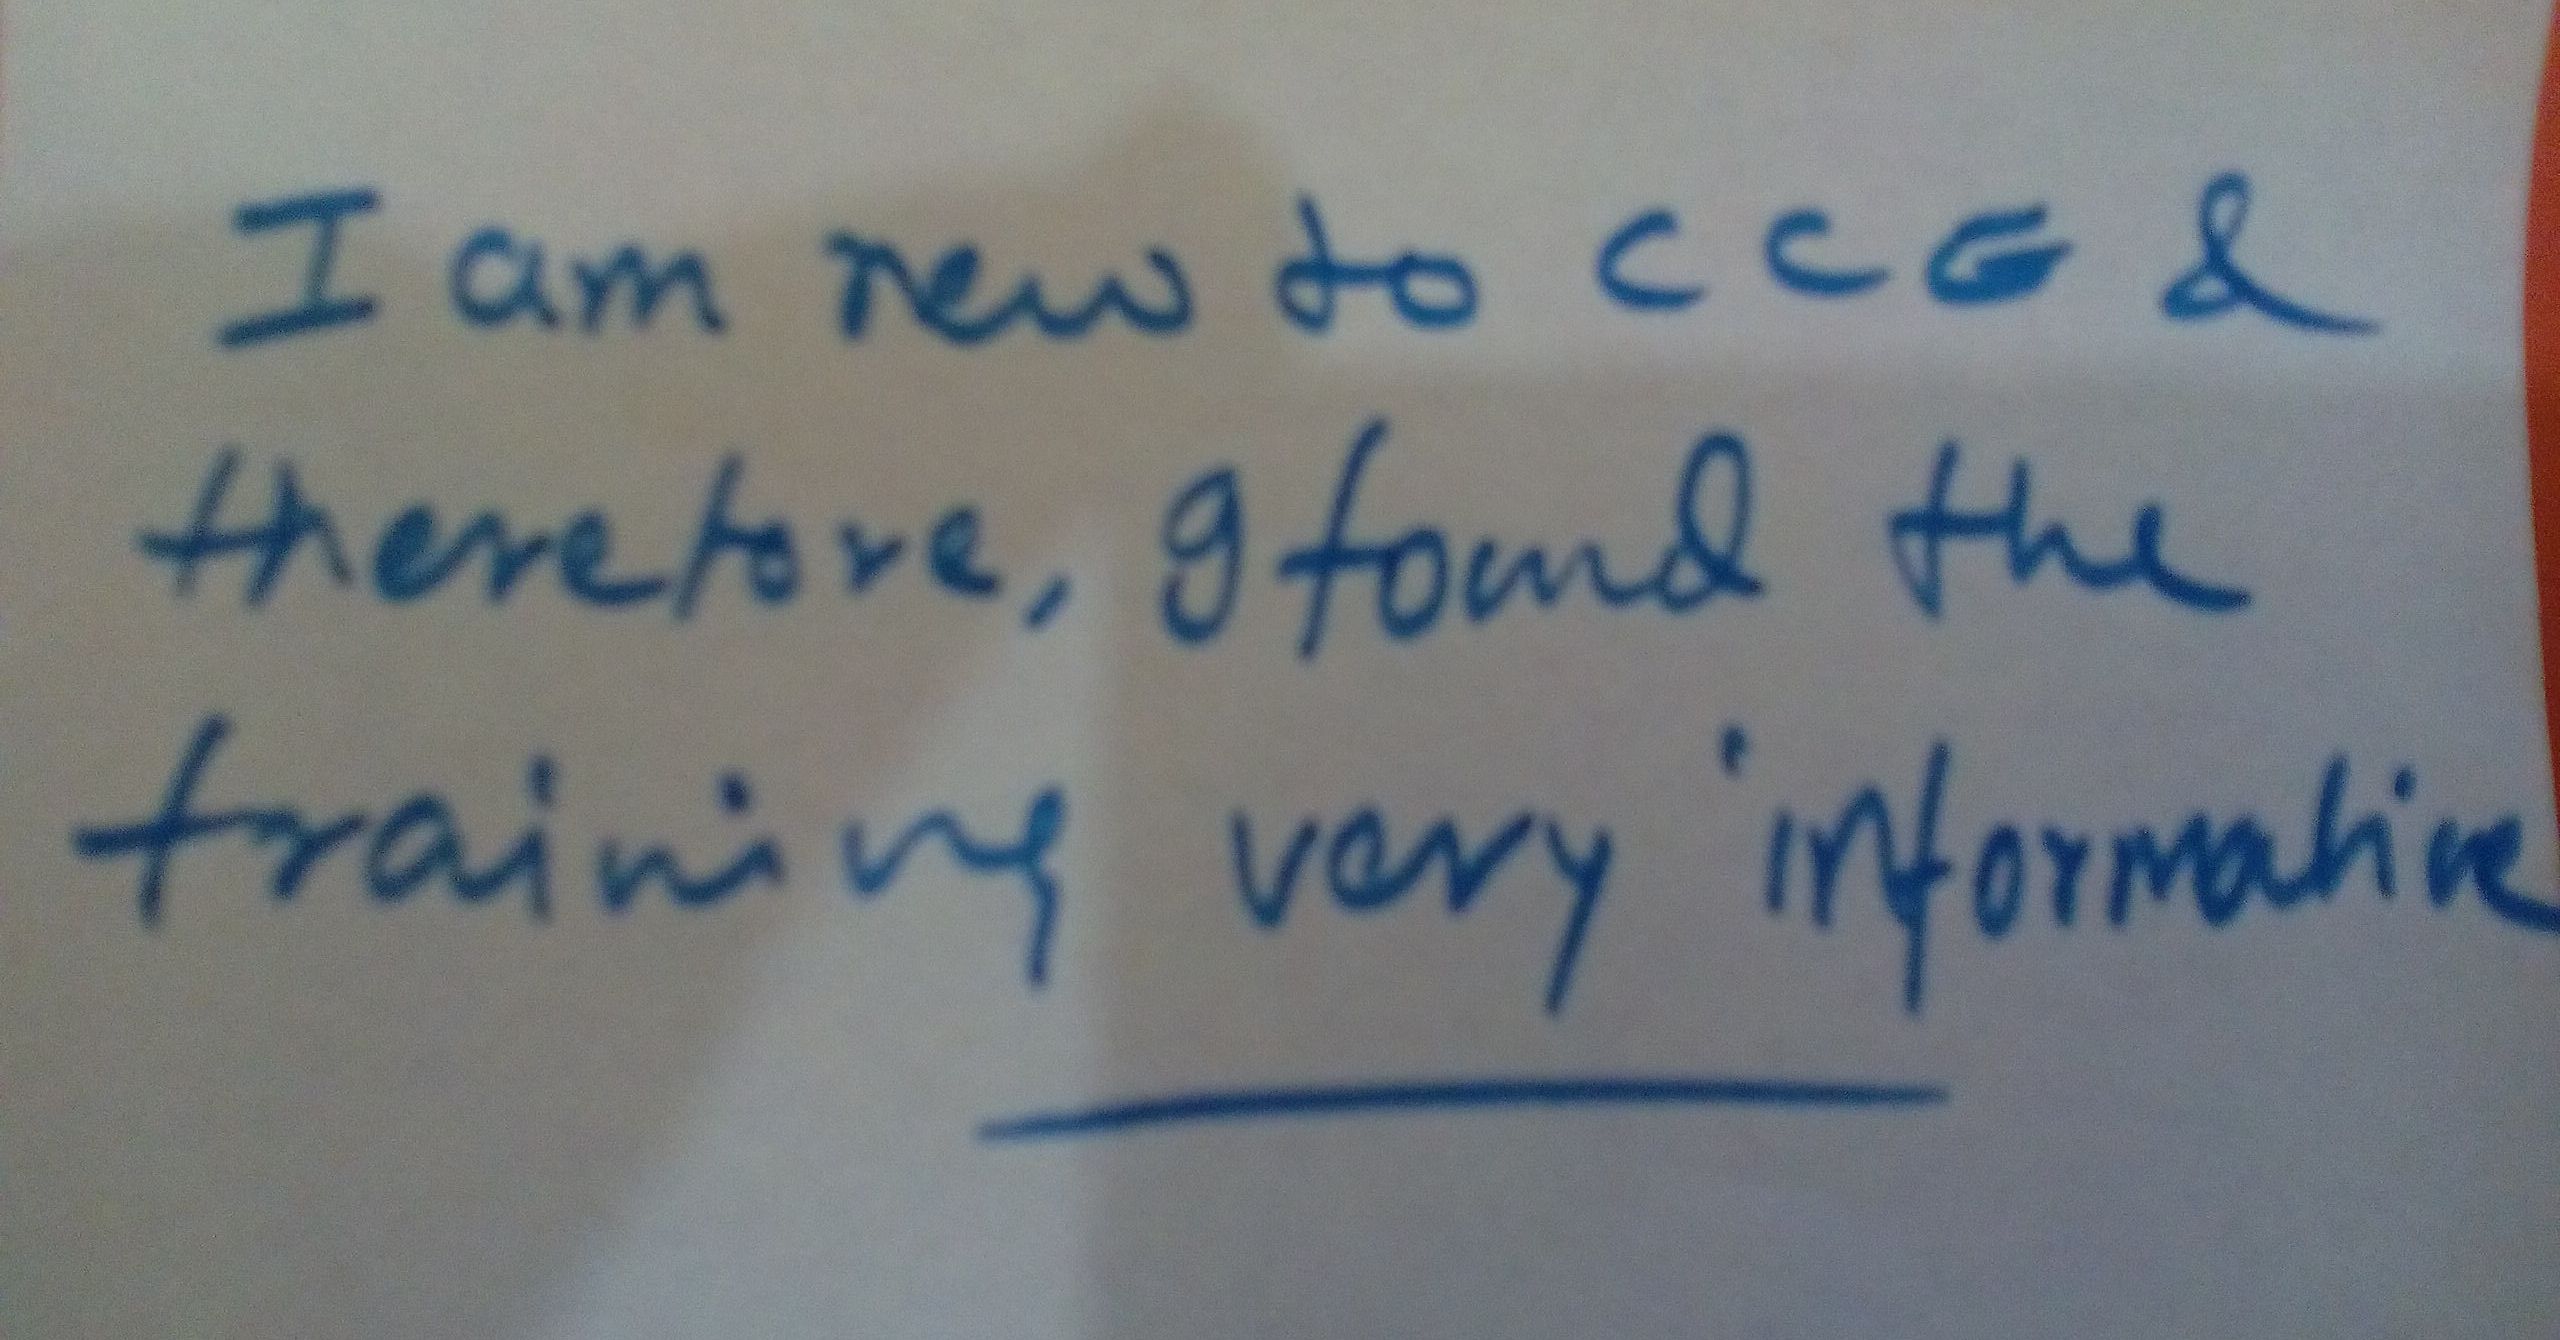 I am new to CCE &
therefore, I found the
training very informative